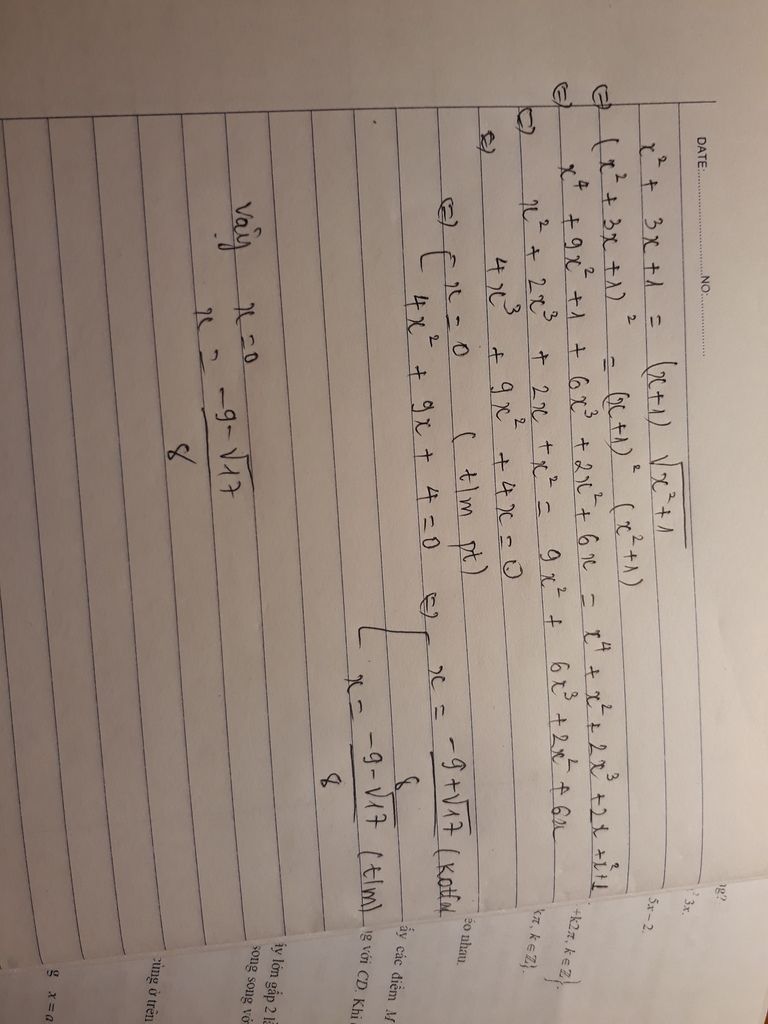 DATE:....................NO:....................
x² + 3x + 1 = (x+1) √x²+1
(=) (x² + 3x + 1)² = (x+1)² (x²+1)
(=) x⁴ + 9x² + 1 + 6x³ + 2x² + 6x = x⁴ + x² + 2x³ + 2x + x² + 1
(=) x² + 2x³ + 2x + x² = 9x² + 6x³ + 2x² + 6x
(=) 4x³ + 9x² + 4x = 0
(=) [ x = 0 (t/m pt)
4x² + 9x + 4 = 0 (=) [ x = -9+√17 / 8 (KOT/M)
x = -9-√17 / 8 (t/m)
Vậy x = 0
x = -9-√17 / 8
ng?
3x.
5x – 2.
+k2π, k ∈ ℤ}.
π, k ∈ ℤ}.
éo nhau.
ấy các điểm M
g với CD. Khi
ấy lớn gấp 2
song song vớ
cùng ở trên
g x = a